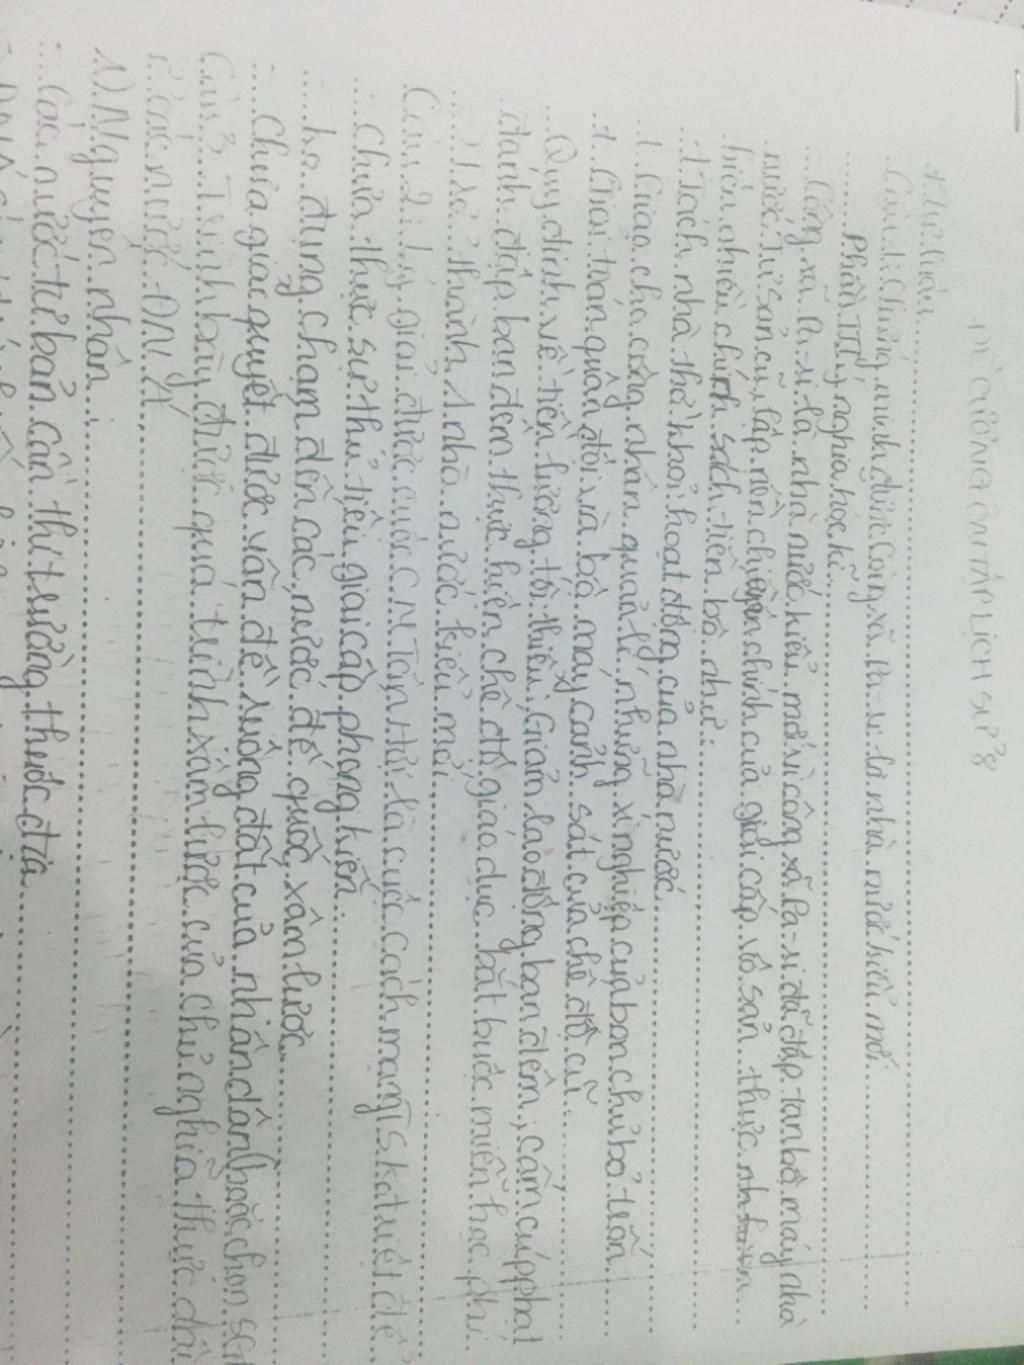 ĐỀ CƯƠNG ÔN TẬP LỊCH SỬ 8
Câu 1: Chứng minh được Công xã Pa-ri là nhà nước kiểu mới
Phần III ý nghĩa học kì
Công xã Pa-ri là nhà nước kiểu mới vì công xã Pa-ri đã đập tan bộ máy nhà
nước tư sản cũ, lập nền chuyên chính của giai cấp vô sản thực
hiện nhiều chính sách tiến bộ như:
+ Tách nhà thờ khỏi hoạt động của nhà nước
+ Giao cho công nhân quản lí những xí nghiệp của bọn chủ bỏ trốn
+ Giải tán quân đội và bộ máy cảnh sát của chế độ cũ
Quy định về tiền lương tối thiểu, Giảm lao động ban đêm, cấm cúp phạt
đánh đập ban đêm thực hiện chế độ giáo dục bắt buộc miễn học phí
thành 1 nhà nước kiểu mới
Câu 2: Lý giải được cuộc CM Tân Hợi là cuộc cách mạng TS ko triệt để
Chưa thực sự thủ tiêu giai cấp phong kiến
ko đụng chạm đến các nước đế quốc xâm lược
Chưa giải quyết được vấn đề ruộng đất của nhân dân (hoặc chọn
Câu 3. Trình bày được quá trình xâm lược của chủ nghĩa thực dân
ở các nước ĐNÁ
1) Nguyên nhân:
Các nước tư bản cần thị trường thuộc địa